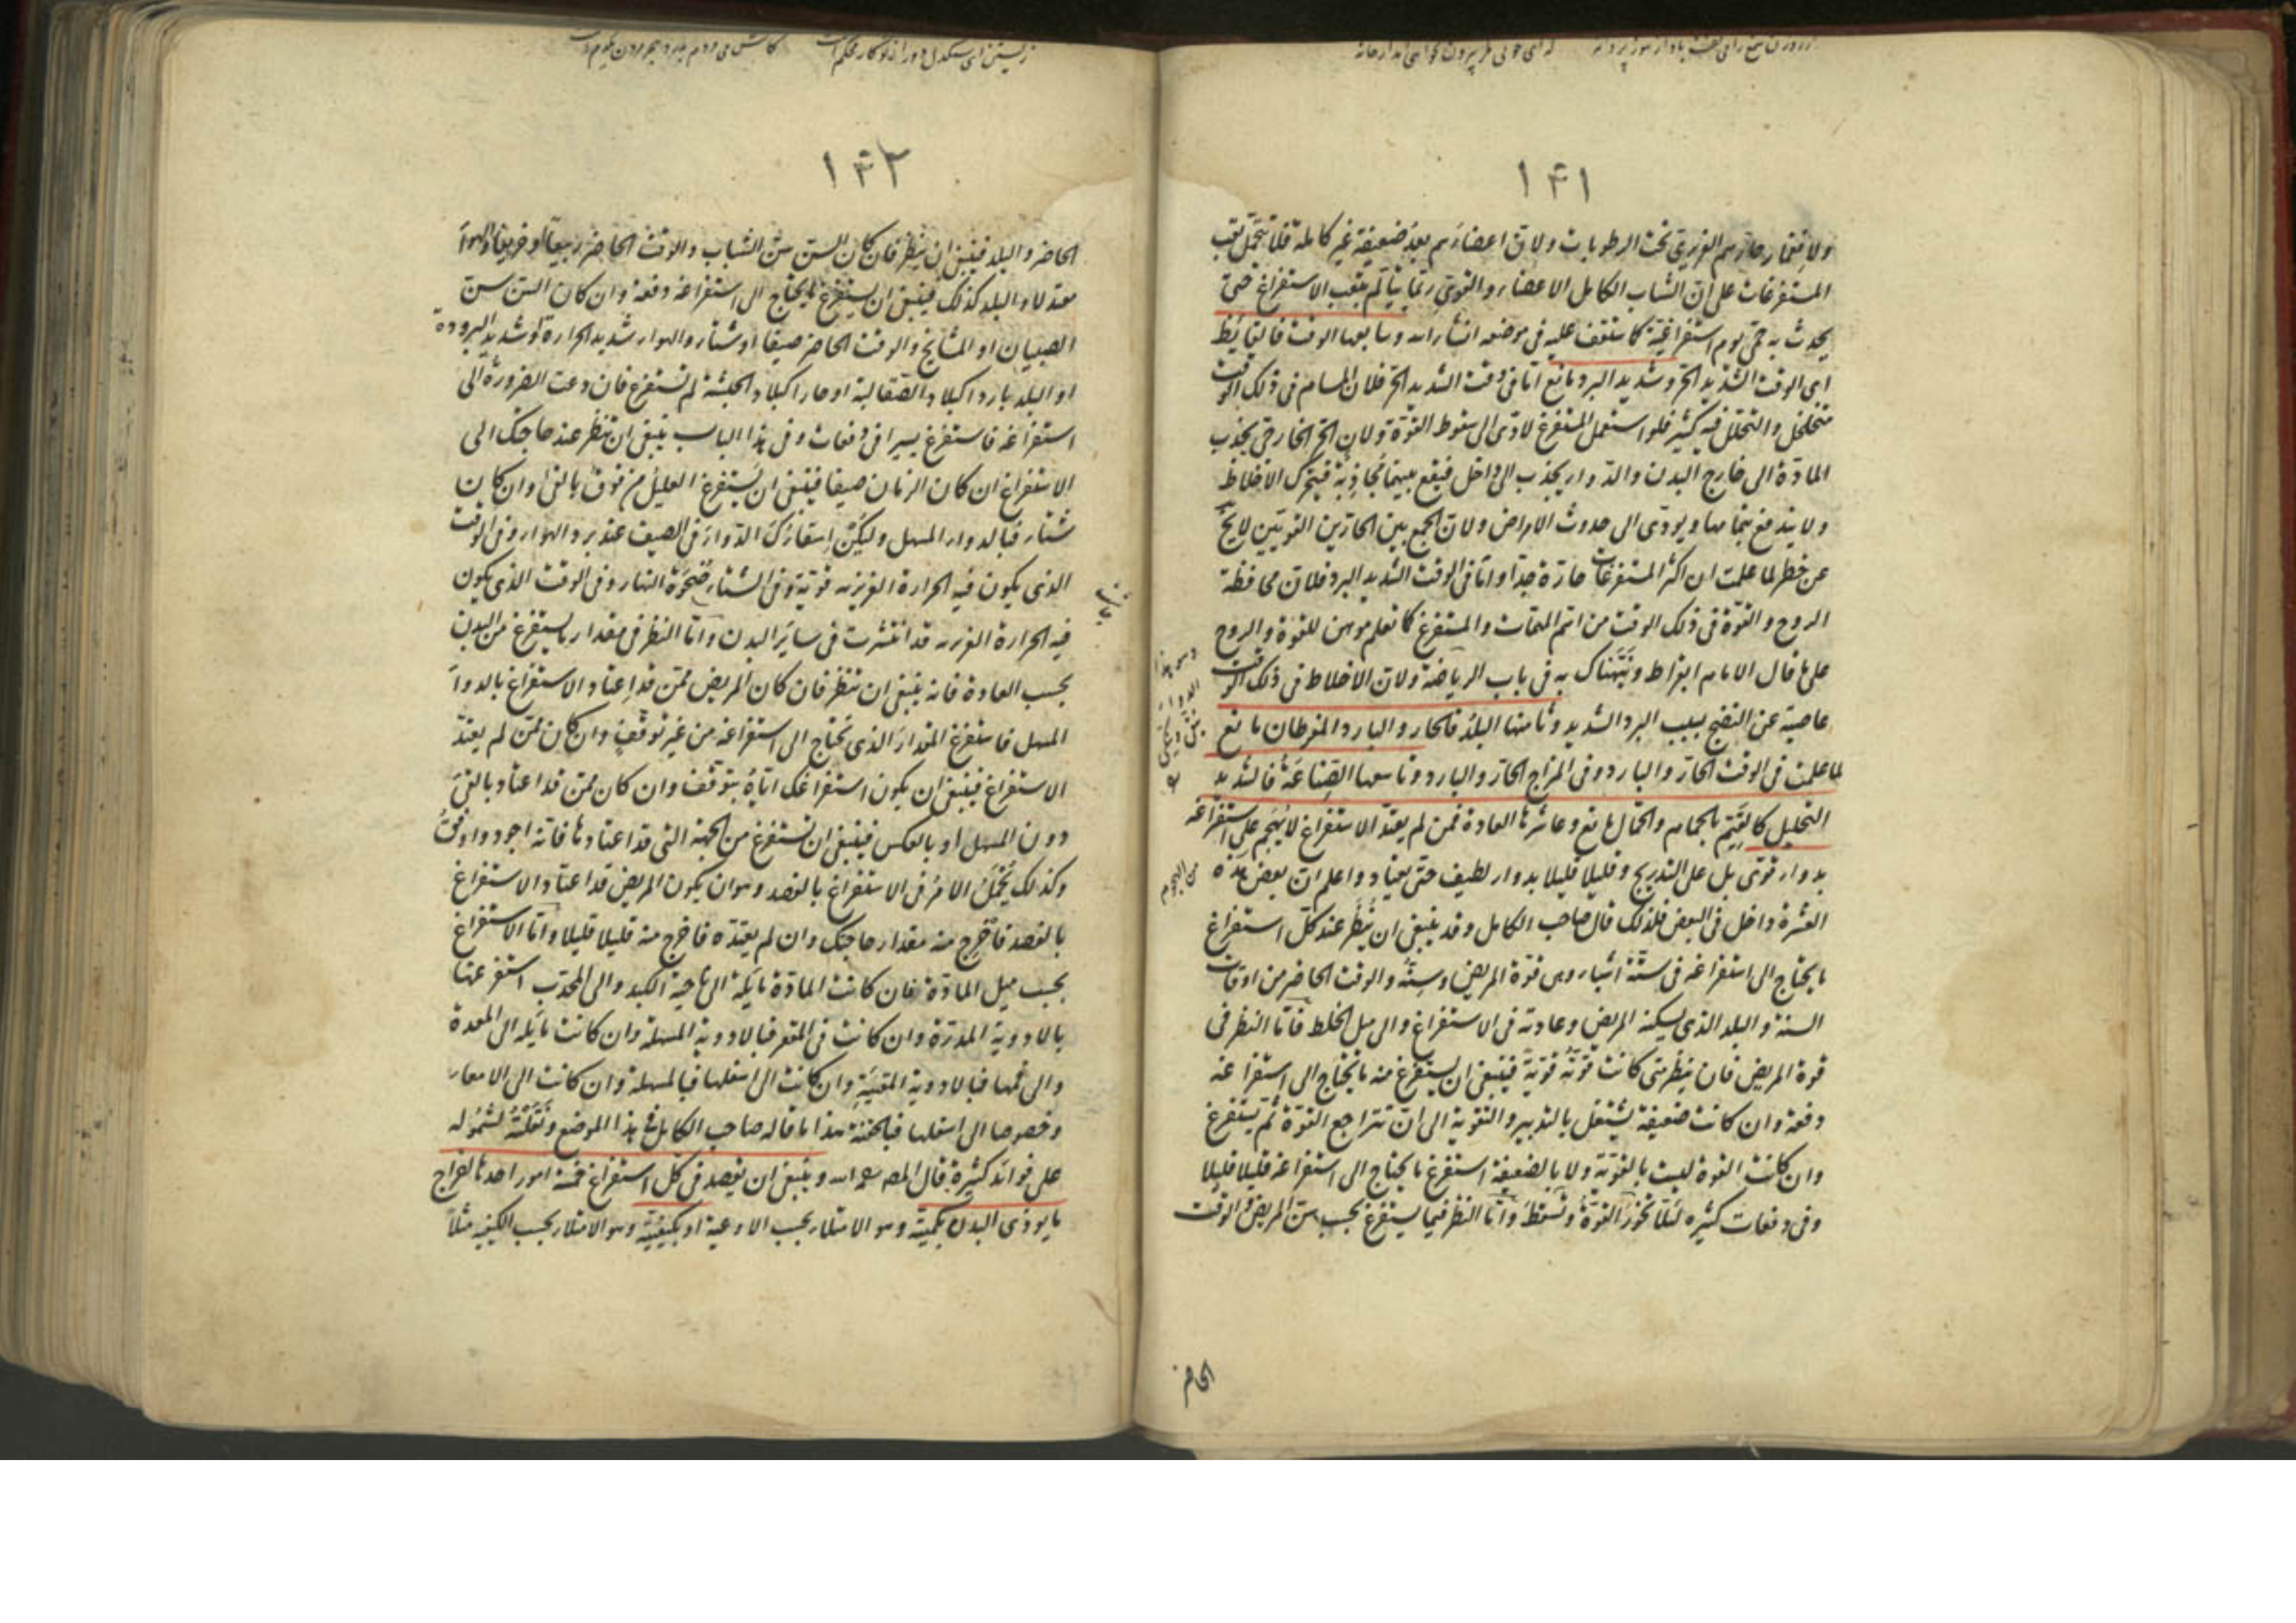 ١٤١
ولانغمار حارهم الغريزي تحت الرطوبات ولان اعضاءهم بعد ضعيفة غير كاملة فلا تتحمل تعب
المستفرغات على ان الشاب الكامل الاعضاء والقوي ربما يتألم بتعب الاستفراغ حتى
يحدث به حمى يوم استفراغية كما ستقف عليه فى موضعه انشاء الله وسابعها الوقت فالقايظ
اى الوقت الشديد الحر وشديد البرد مانع اما فى وقت الشديد الحر فلان المسام فى ذلك الوقت
متخلخل والتحلل فيه كثير فلو استعمل المستفرغ لادى الى سقوط القوة ولان الحر الخارجى يجذب
المادة الى خارج البدن والدواء يجذب الى داخل فيقع بينهما مجاذبة فيتحرك الاخلاط
ولا يندفع بتمامها ويودى الى حدوث الامراض ولان الجمع بين الحارين القويين لا يخ
عن خطر لما علمت ان اكثر المستفرغات حارة جدا واما فى الوقت الشديد البرد فلان محافظة
الروح والقوة فى ذلك الوقت من اتم المهمات والمستفرغ كما تعلم موهن للقوة والروح
على ما قال الامام ابقراط ونبهناك به فى باب الرياضة ولان الاخلاط فى ذلك الوقت
عاصية عن النضج بسبب البرد الشديد وثامنها البلد فالحار والبارد المفرطان مانع
لما علمت فى الوقت الحار والبارد وفى المزاج الحار والبارد وتاسعها الصناعة فالشديد
التحليل كالقيم بالحمام والحمال مانع وعاشرها العادة فمن لم يعتد الاستفراغ لا يهجم على استفراغه
بدواء قوى بل على التدريج وقليلا قليلا بدواء لطيف حتى يعتاد واعلم ان بعض هذه
العشرة داخل فى البعض فلذلك قال صاحب الكامل وقد ينبغى ان ينظر عند كل استفراغ
ما يحتاج الى استفراغه فى ستة اشياء وهى قوة المريض وسنه والوقت الحاضر من اوقات
السنة والبلد الذى يسكنه المريض وعادته فى الاستفراغ والى ميل الخلط فاما النظر فى
قوة المريض فان ينظر متى كانت قوته قوية فينبغى ان يستفرغ منه ما يحتاج الى استفراغه
دفعة وان كانت ضعيفة يشتغل بالتدبير والتقوية الى ان تتراجع القوة ثم يستفرغ
وان كانت القوة ليست بالقوية ولا بالضعيفة استفرغ ما يحتاج الى استفراغه قليلا قليلا
وفى دفعات كثيره لئلا تخور القوة وتسقط واما النظر فيما يستفرغ بحسب سن المريض والوقت
من الهجوم
الحاضر
١٤٢
الحاضر والبلد فينبغى ان ينظر فان كان السن سن الشباب والوقت الحاضر ربيعا او خريفا والهواء
معتدلا والبلد كذلك فينبغى ان يستفرغ ما يحتاج الى استفراغه دفعة وان كان السن سن
الصبيان او المشايخ والوقت الحاضر صيفا او شتاء والهواء شديد الحرارة او شديد البرودة
او البلد باردا كبلاد الصقالبة او حارا كبلاد الحبشة لم تستفرغ فان دعت الضرورة الى
استفراغه فاستفرغ يسيرا فى دفعات وفى هذا الباب ينبغى ان تنظر عند حاجتك الى
الاستفراغ ان كان الزمان صيفا فينبغى ان يستفرغ العليل من فوق بالقئ وان كان
شتاء فبالدواء المسهل وليكن اسقاؤك الدواء فى الصيف عند برد الهواء وفى الوقت
الذى يكون فيه الحرارة الغريزيه قوية وفى الشتاء ضحوة النهار وفى الوقت الذى يكون
فيه الحرارة الغريزيه قد انتشرت فى ساير البدن واما النظر فى مقدار ما يستفرغ من البدن
بحسب العادة فانه ينبغى ان تنظر فان كان المريض ممن قد اعتاد الاستفراغ بالدواء
المسهل فاستفرغ المقدار الذى تحتاج الى استفراغه من غير توقف وان كان ممن لم يعتد
الاستفراغ فينبغى ان يكون استفراغك اياه بتوقف وان كان ممن قد اعتاد بالقئ
دون المسهل او بالعكس فينبغى ان تستفرغ من الجهة التى قد اعتادها فانه اجود واوفق
وكذلك يجمل الامر فى الاستفراغ بالفصد وهو ان يكون المريض قد اعتاد الاستفراغ
بالفصد فاخرج منه مقدار حاجتك وان لم يعتده فاخرج منه قليلا قليلا واما الاستفراغ
بحسب ميل المادة فان كانت المادة مايلة الى ناحية الكبد والى المحدب استفرغتها
بالادوية المدرة وان كانت فى المقعر فبالادوية المسهلة وان كانت مايله الى المعدة
والى فمها فبالادوية المقيئة وان كانت الى اسفلها فبالمسهلة وان كانت الى الامعاء
وخصوصا الى اسفلها فبالحقنة هذا ما قاله صاحب الكامل فى هذا الموضع ونقلته لشموله
على فوائد كثيرة قال المص رحمه الله وينبغى ان يقصد فى كل استفراغ خمسة امور احدها اخراج
ما يوذى البدن بكميته وهو الامتلاء بحسب الاوعية او بكيفيته وهو الامتلاء بحسب الكيفية مثلا